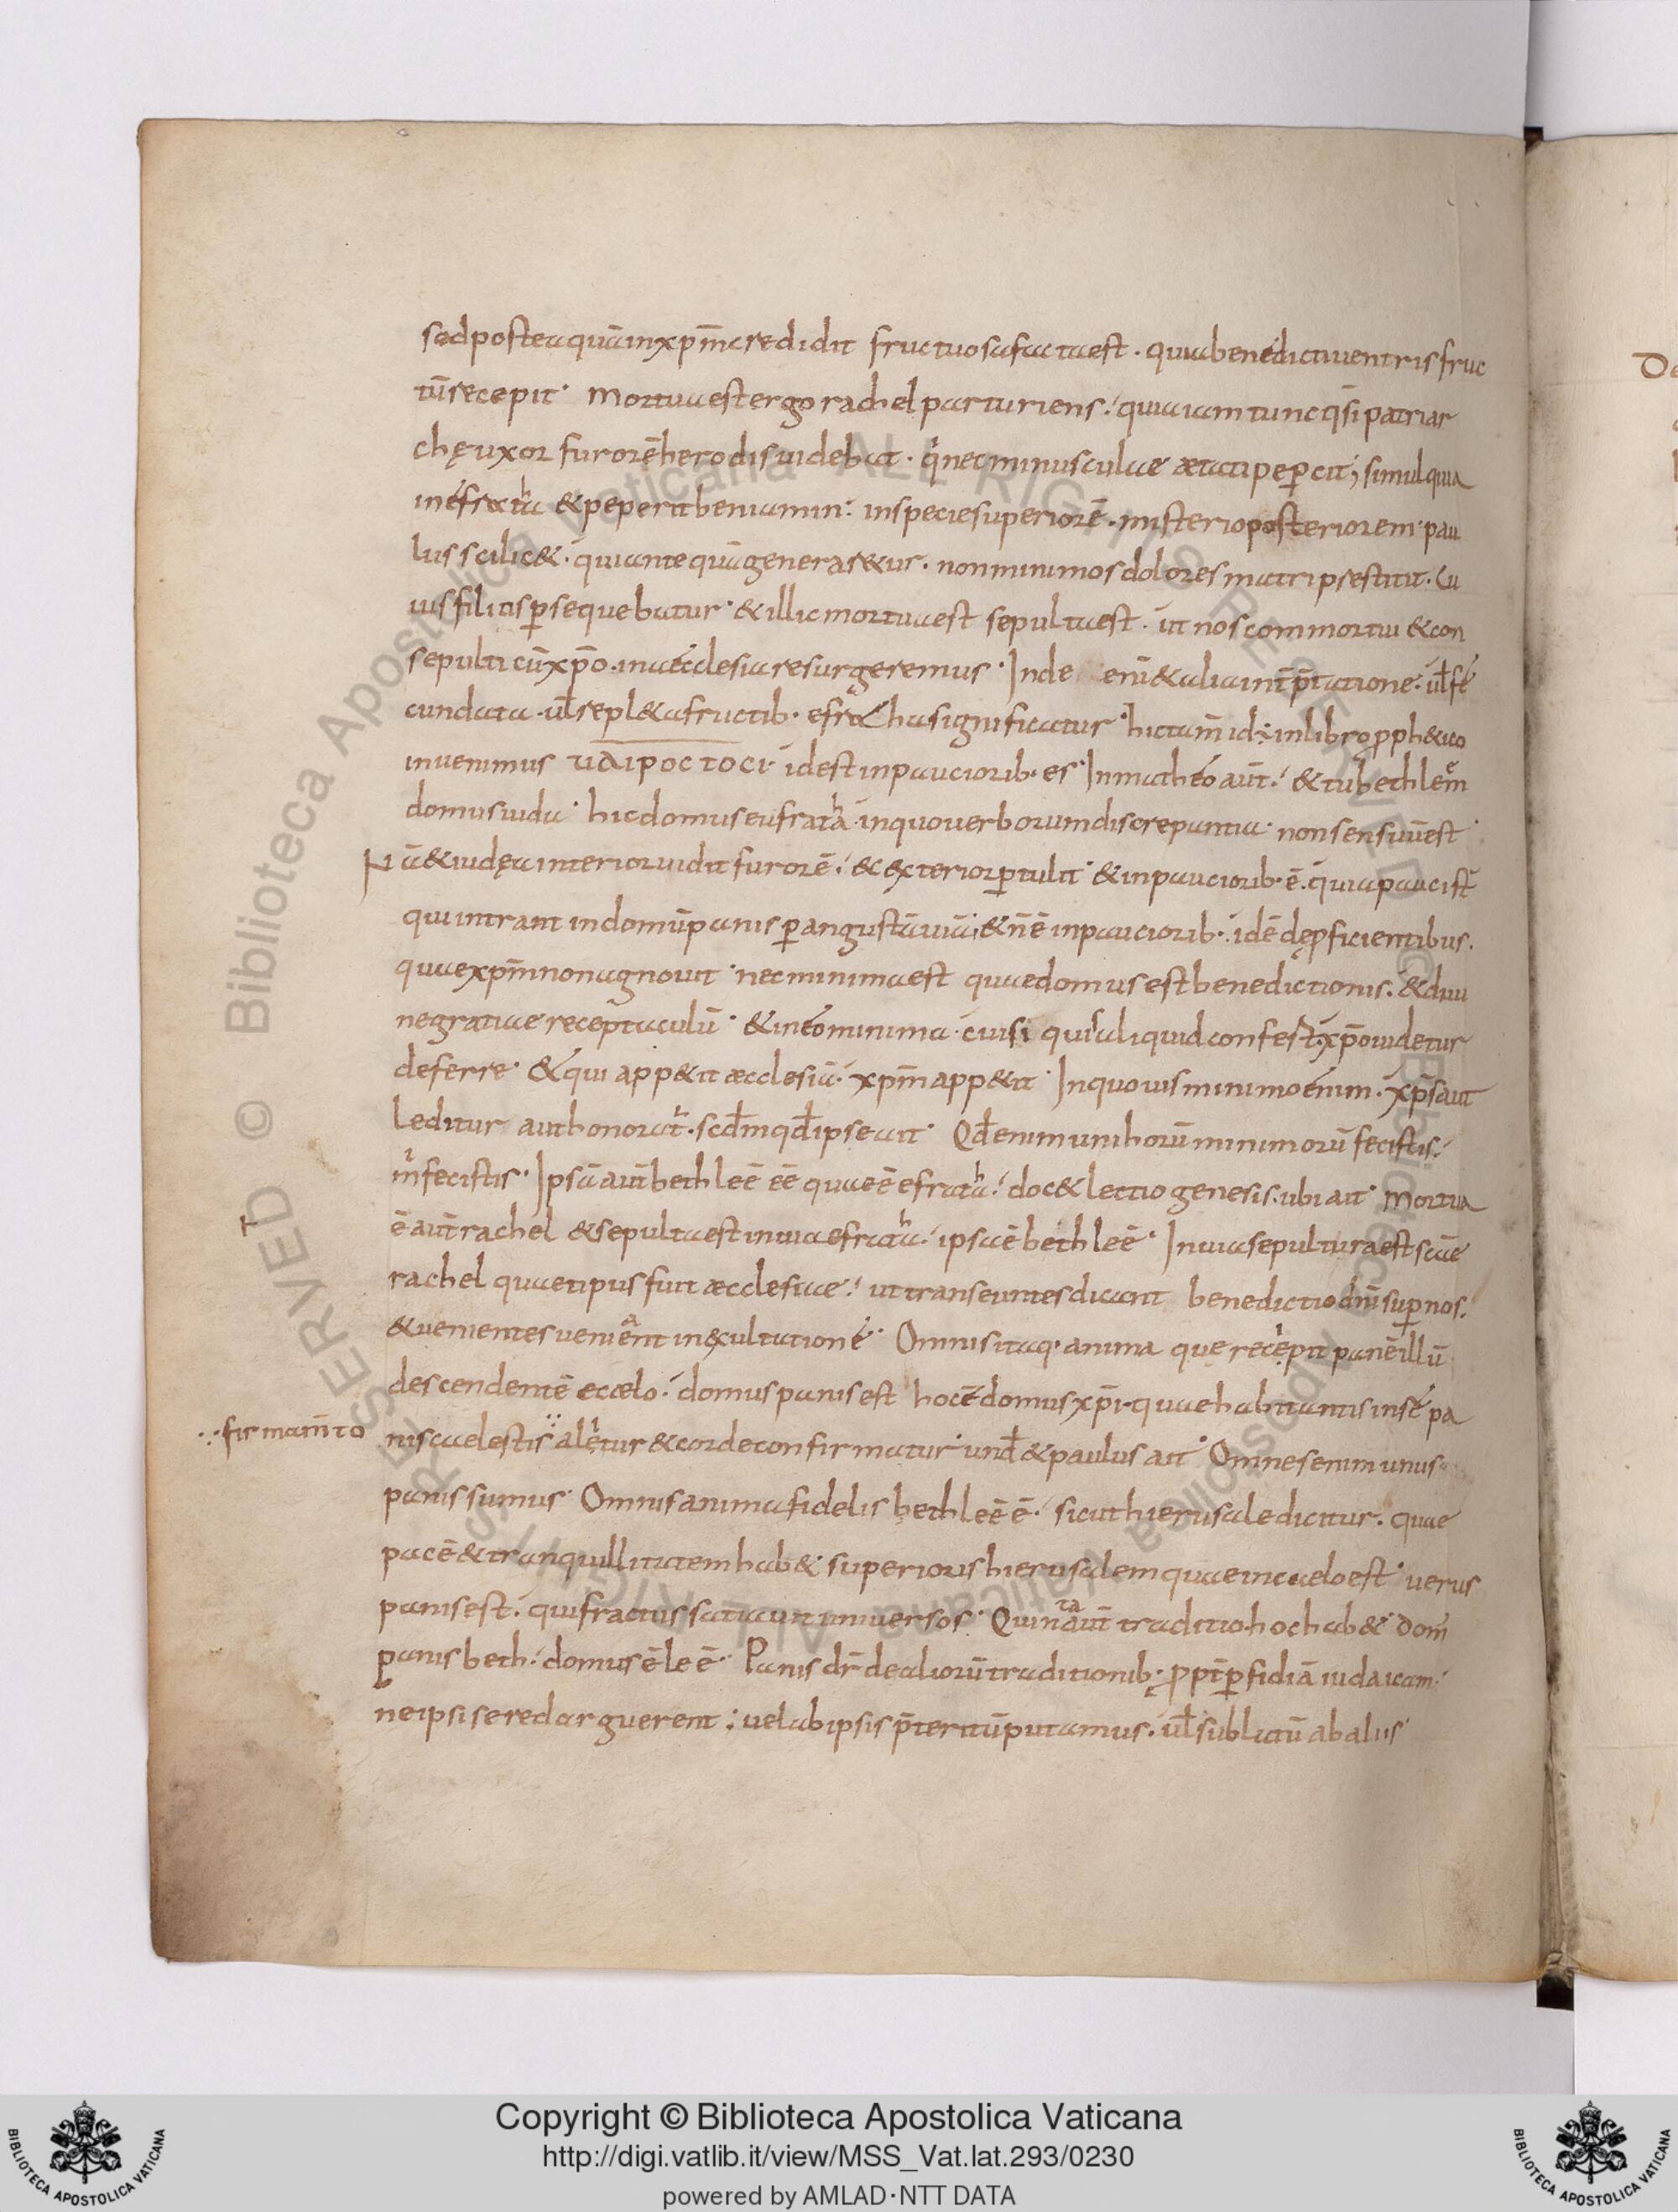 sed posteaquā in xp̄m credidit fructuosa facta est · quia benedicti uentris fruc
tū suscepit · Mortua est ergo rachel parturiens · quia iam tunc q̄si patriar
chę uxor furorē herodis uidebat · q̄ nec minusculae ætati peꝑcit ; simul quia
in efrata & peperit beniamin : in specie superiorē · misterio posteriorem · pau
lus scilic& · qui antequā generar&ur · non minimos dolores matri p̄sestitit · Cu
ius filios ꝑsequebatur · & illic mortua est sepulta est · ut nos commortui & con
sepulti cū xp̄o · in aecclesia resurgeremus · Inde enī & alia int̄p̄tatione · uł fe
cundata · uł repl&a fructib · efratha significatur · hic tam̄ id : in libro pph&ico
inuenimus idest in pauciorib · es · In matheo aūt · & tu bethleem
domus iuda · hic domus eufrata · in quo uerborum discrepantia · non sensuū est ·
Nā & iudęa interior uidit furorē · & exterior ꝑtulit · & in paucioribꝫ ē · quia pauci sꝉ
qui intrant in domū panis ꝑ angustā uiā ; & n̄ ē in paucioribꝫ · idē dę ꝓficientibus ·
quae xp̄m non agnouit · nec minima est quae domus est benedictionis · & diui
ne gratiae receptaculū · & in eo minima · cui si quis aliquid confest · xp̄o uidetur
deferre · & qui app&it æcclesiā · xp̄m app&it · In quouis minimo enim · xp̄s aut
leditur aut honorat · scd̄m qd̄ ipse ait · Qd̄ enim uni horū minimorū fecistis ·
m̄ fecistis · Ipsā aūt bethleē eē quae ē efrata · doc& lectio genesis · ubi ait · Mortua
ē aūt rachel & sepulta est in uia efrata · ipsa ē bethleē · In uia sepultura est scāe
rachel quae tipus fuit æcclesiae · ut transeuntes dicant benedictio dn̄i suꝑ nos ·
& uenientes ueniant in exultatione · Omnis itaqꝫ anima que recepit panē illū
descendentē e cælo · domus panis est hoc ē domus xp̄i · quae habitantis in se pa
nis caelestis aletur & corde confirmatur · und̄ & paulus ait · Omnes enim unus
·.· firmam̄to
panis sumus · Omnis anima fidelis bethleē ē · sicut hierusale dicitur · quae
pacē & tranquillitatem hab& · superioris hierusalem quae in caelo est · uerus
panis est · qui fractus satiauit uniuersos · Quinta aūt traditio hoc hab& · dom
ꝑanis beth · domus ē le ē · Panis dr̄ de aliorū traditionibꝫ · ꝓpt̄ ꝑfidiā iudaicam ·
ne ipsi se redarguerent ; uel ab ipsis p̄teritū putamus · uł sublatū ab aliis
Copyright © Biblioteca Apostolica Vaticana
http://digi.vatlib.it/view/MSS_Vat.lat.293/0230
powered by AMLAD·NTT DATA
BIBLIOTECA APOSTOLICA VATICANA
BIBLIOTECA APOSTOLICA VATICANA